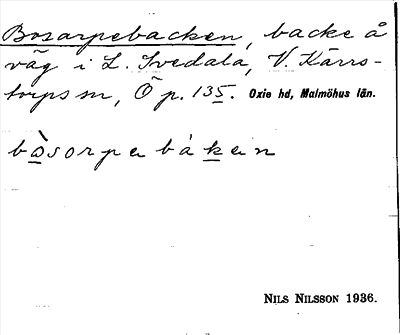 Bosarpebacken, backe å
väg i L. Svedala, V. Kärrs-
torps sn, Ö p. 135. Oxie hd, Malmöhus län.
bòsorpebákęn
NILS NILSSON 1936.